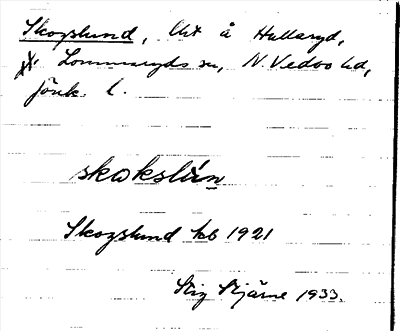 Skogslund, lht å Hullaryd,
Lommaryds sn, N. Vedbo hd,
Jönk. l.
skɷkslún
Skogslund kb 1921
Stig Stjärne 1933.